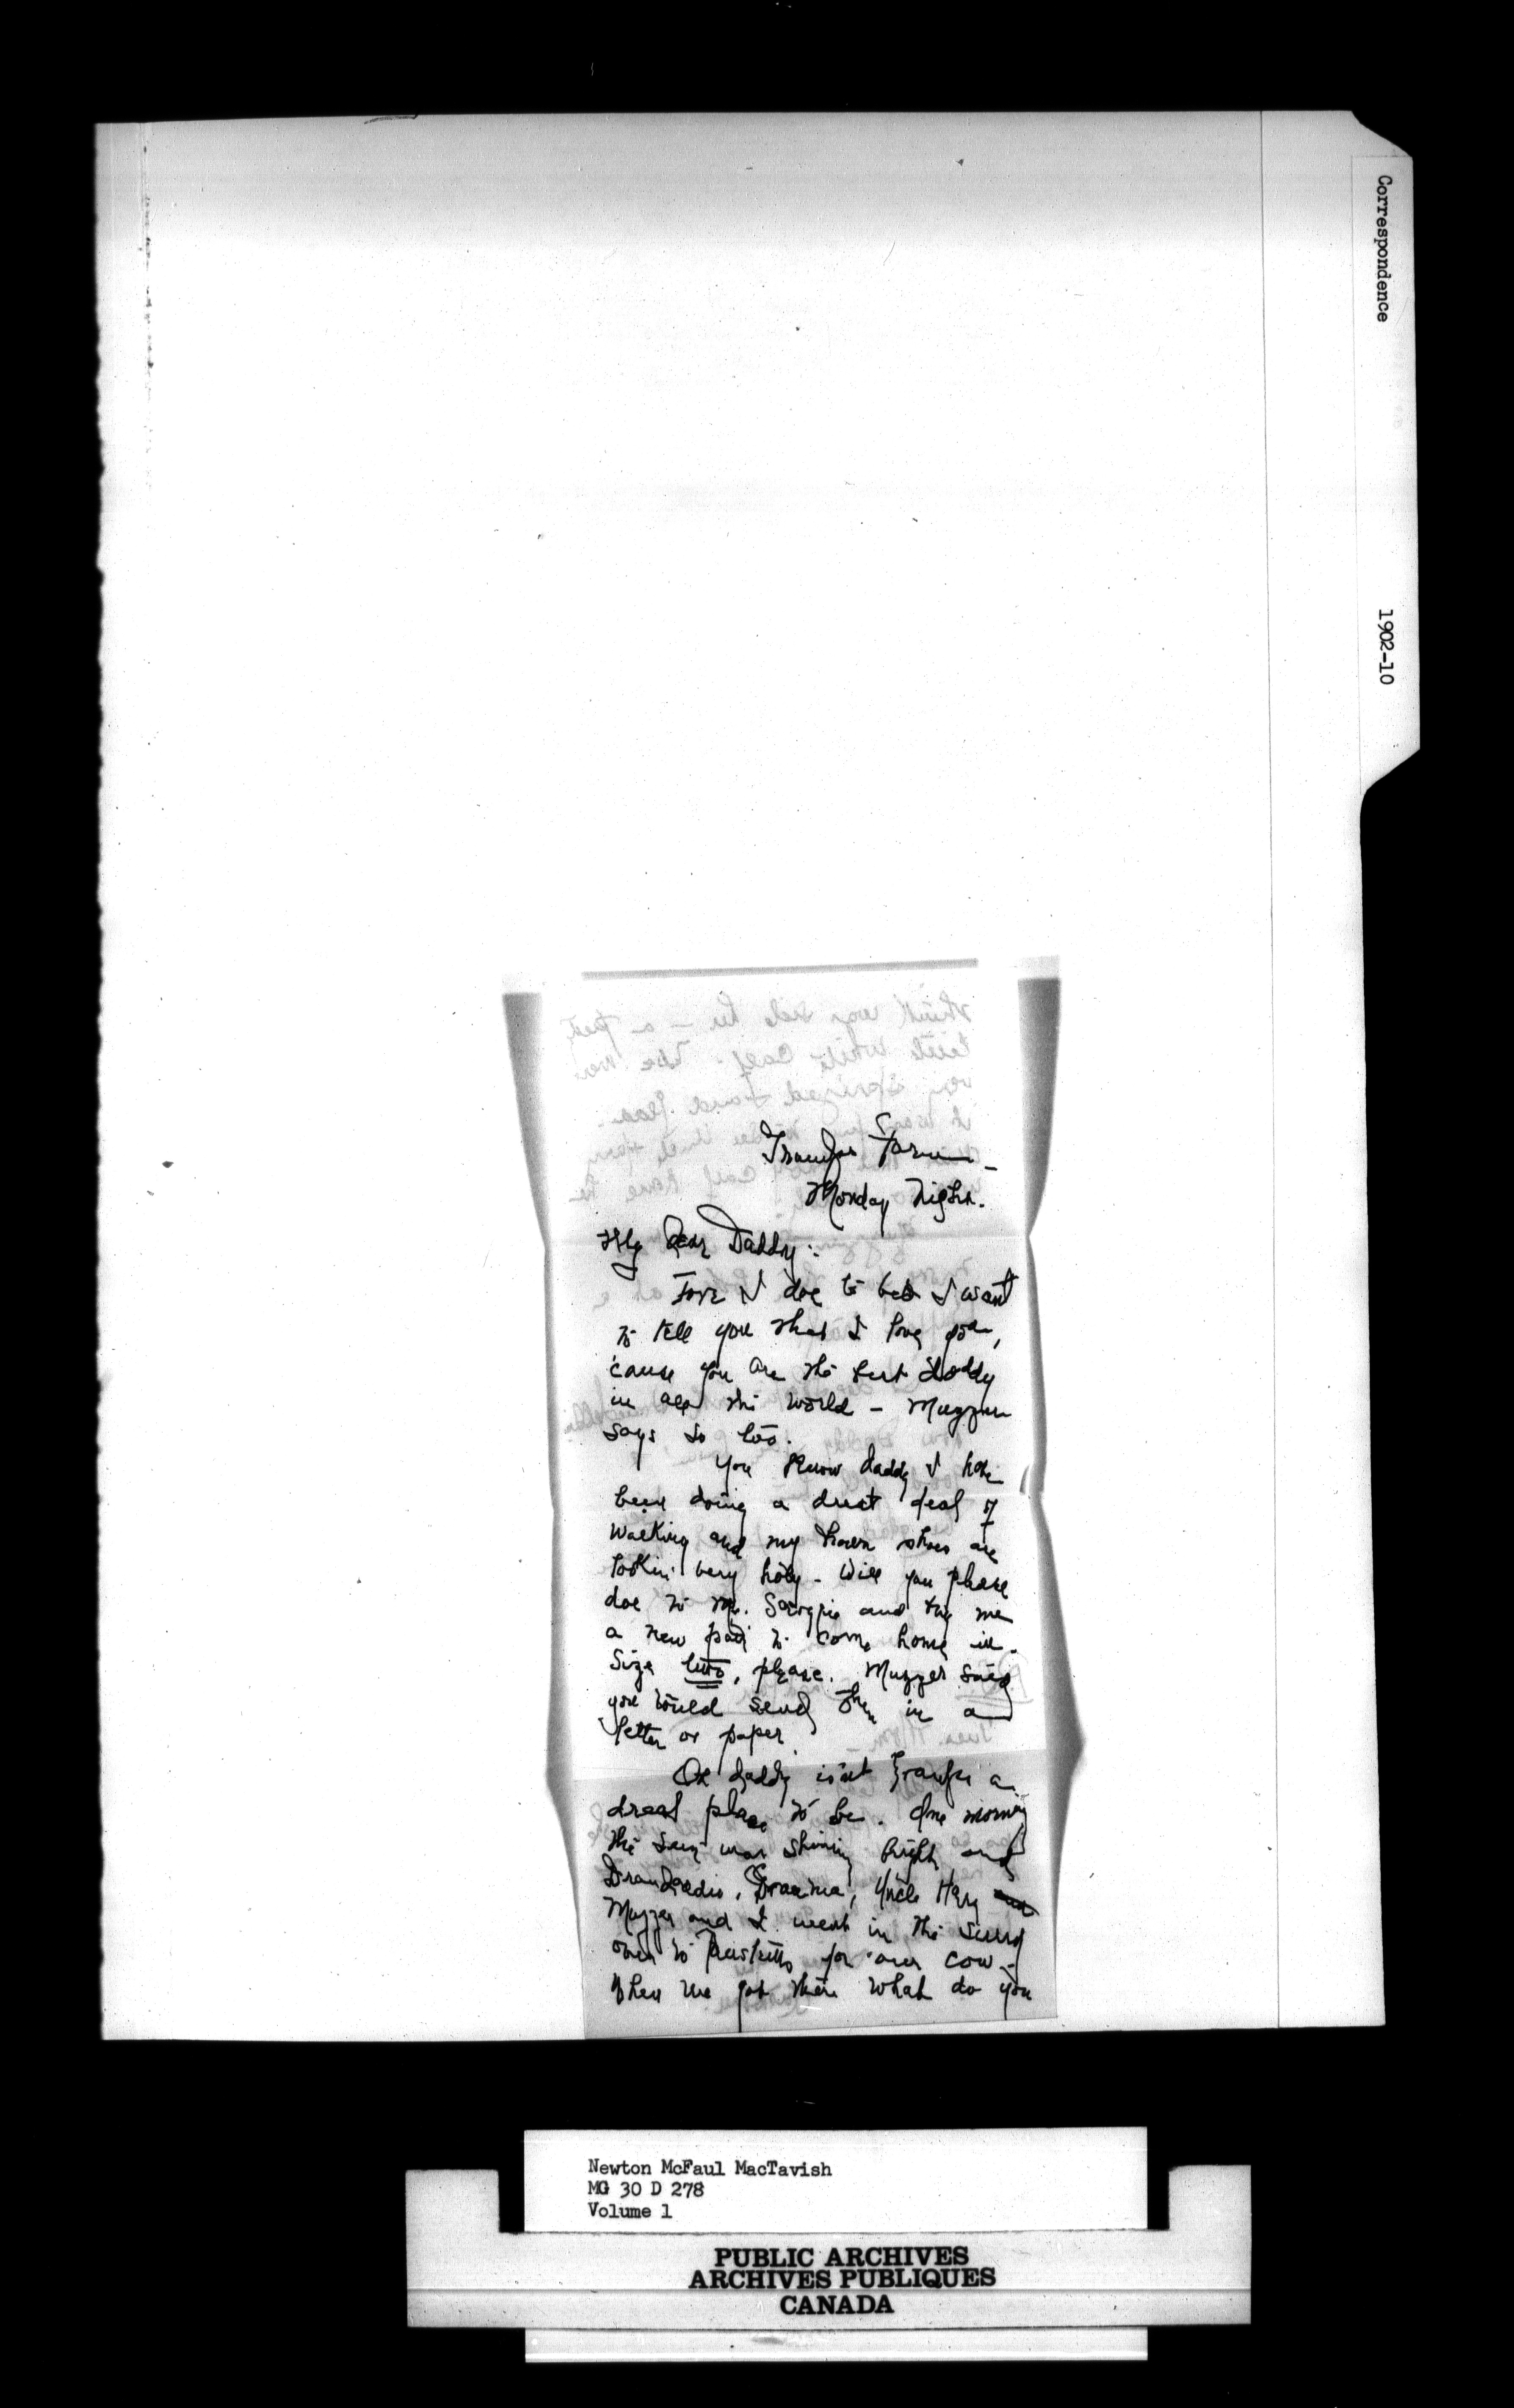 Correspondence
1902-10
Farm -
Monday Night.
My Dear Daddy:
Fore I doe to bed I want
to tell you that I love you,
'cause you are the best daddy
in all the world - Muzzer
says so too.
You know daddy I have
been doing a dreat deal of
walking and my brown shoes are
lookin' very holy - Will you please
doe to Mr. and buy me
a new pair to come home in.
Size two, please. Muzzer said
you would send them in a
letter or paper.
Oh daddy isn't a
dreat place to be. One morning
the sun was shining bright and
Drandaddie, Dramma, Uncle Harry and
Muzzer and I went in the surrey
over to for our cow -
When we got there what do you
Newton McFaul MacTavish
MG 30 D 278
Volume 1
PUBLIC ARCHIVES
ARCHIVES PUBLIQUES
CANADA